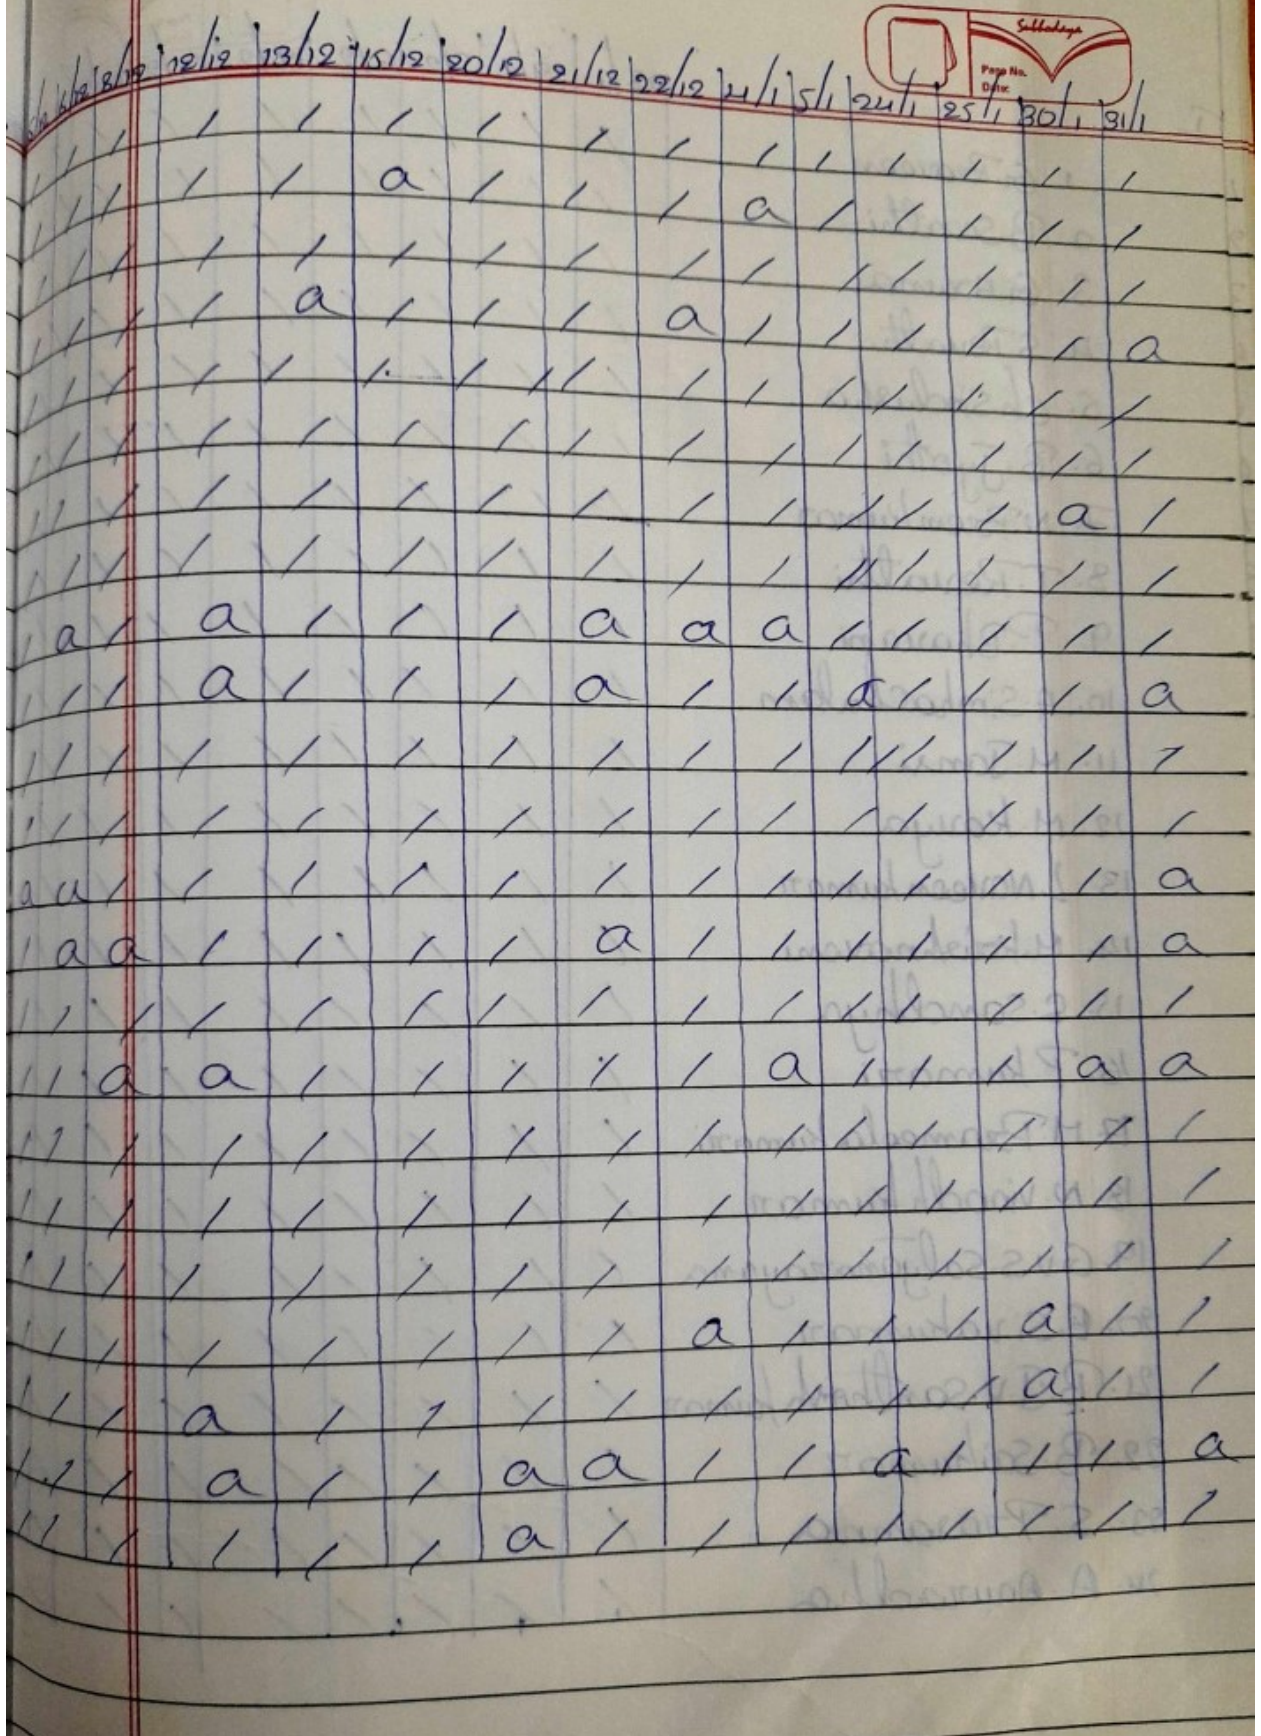 Subhodaya
Page No.
Date:
6/12 8/12 12/12 13/12 15/12 20/12 21/12 22/12 4/1 5/1 24/1 25/1 30/1 31/1
/ / / / / / / / / / / / / / /
/ / / / / a / / / a / / / / /
/ / / / / / / / / / / / / / /
/ / / / a / / / a / / / / / a
/ / / / / / / / / / / / / / /
/ / / / / / / / / / / / / / /
/ / / / / / / / / / / / / a /
/ / / / / / / / / / / / / / /
/ a / a / / / a a a / / / / /
/ / / a / / / a / / a / / / a
/ / / / / / / / / / / / / / /
/ / / / / / / / / / / / / / /
a a / / / / / / / / / / / / a
/ a a / / / / a / / / / / / a
/ / / / / / / / / / / / / / /
/ / a a / / / / / a / / / a a
/ / / / / / / / / / / / / / /
/ / / / / / / / / / / / / / /
/ / / / / / / / / / / / / / /
/ / / / / / / / a / / / a / /
/ / / a / / / / / / / / a / /
/ / / a / / a a / / a / / / a
/ / / / / / a / / / / / / / /